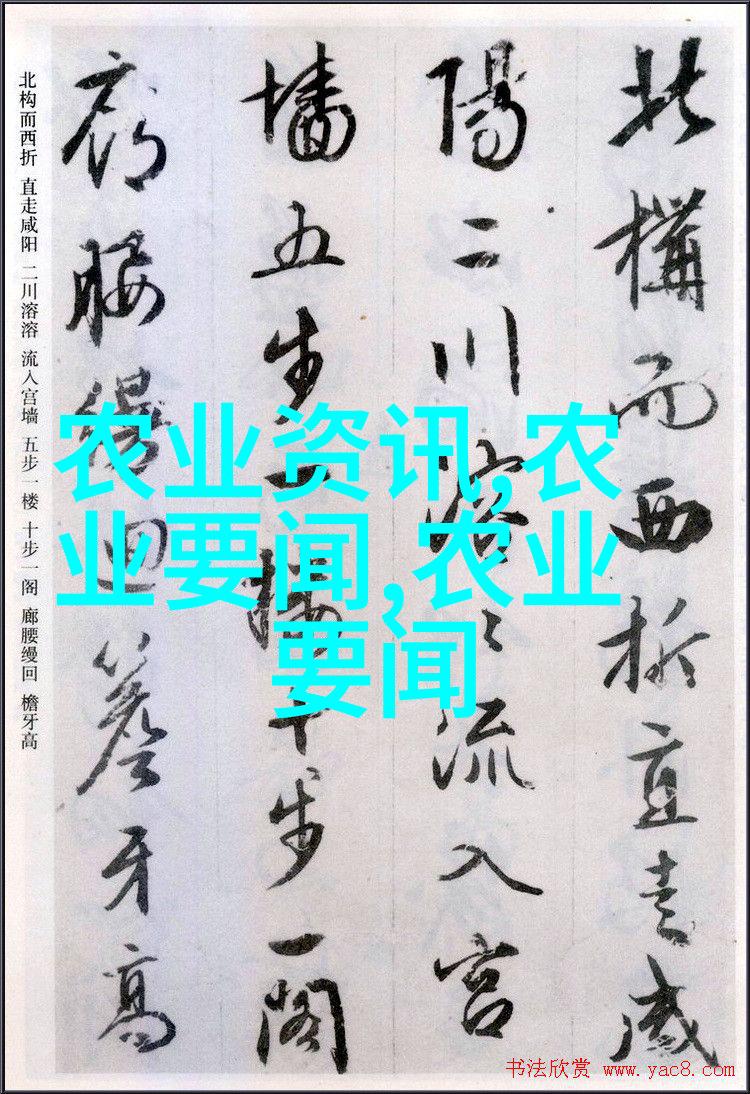 北構而西折直走咸
陽二川溶〻流入宮
墻五步一樓十步一閣
廊腰缦迴簷牙高
北构而西折 直走咸阳 二川溶溶 流入宫墙 五步一楼 十步一阁 廊腰缦回 檐牙高
农业资讯,农
业要闻,农业
要闻
书法欣赏 www.yac8.com